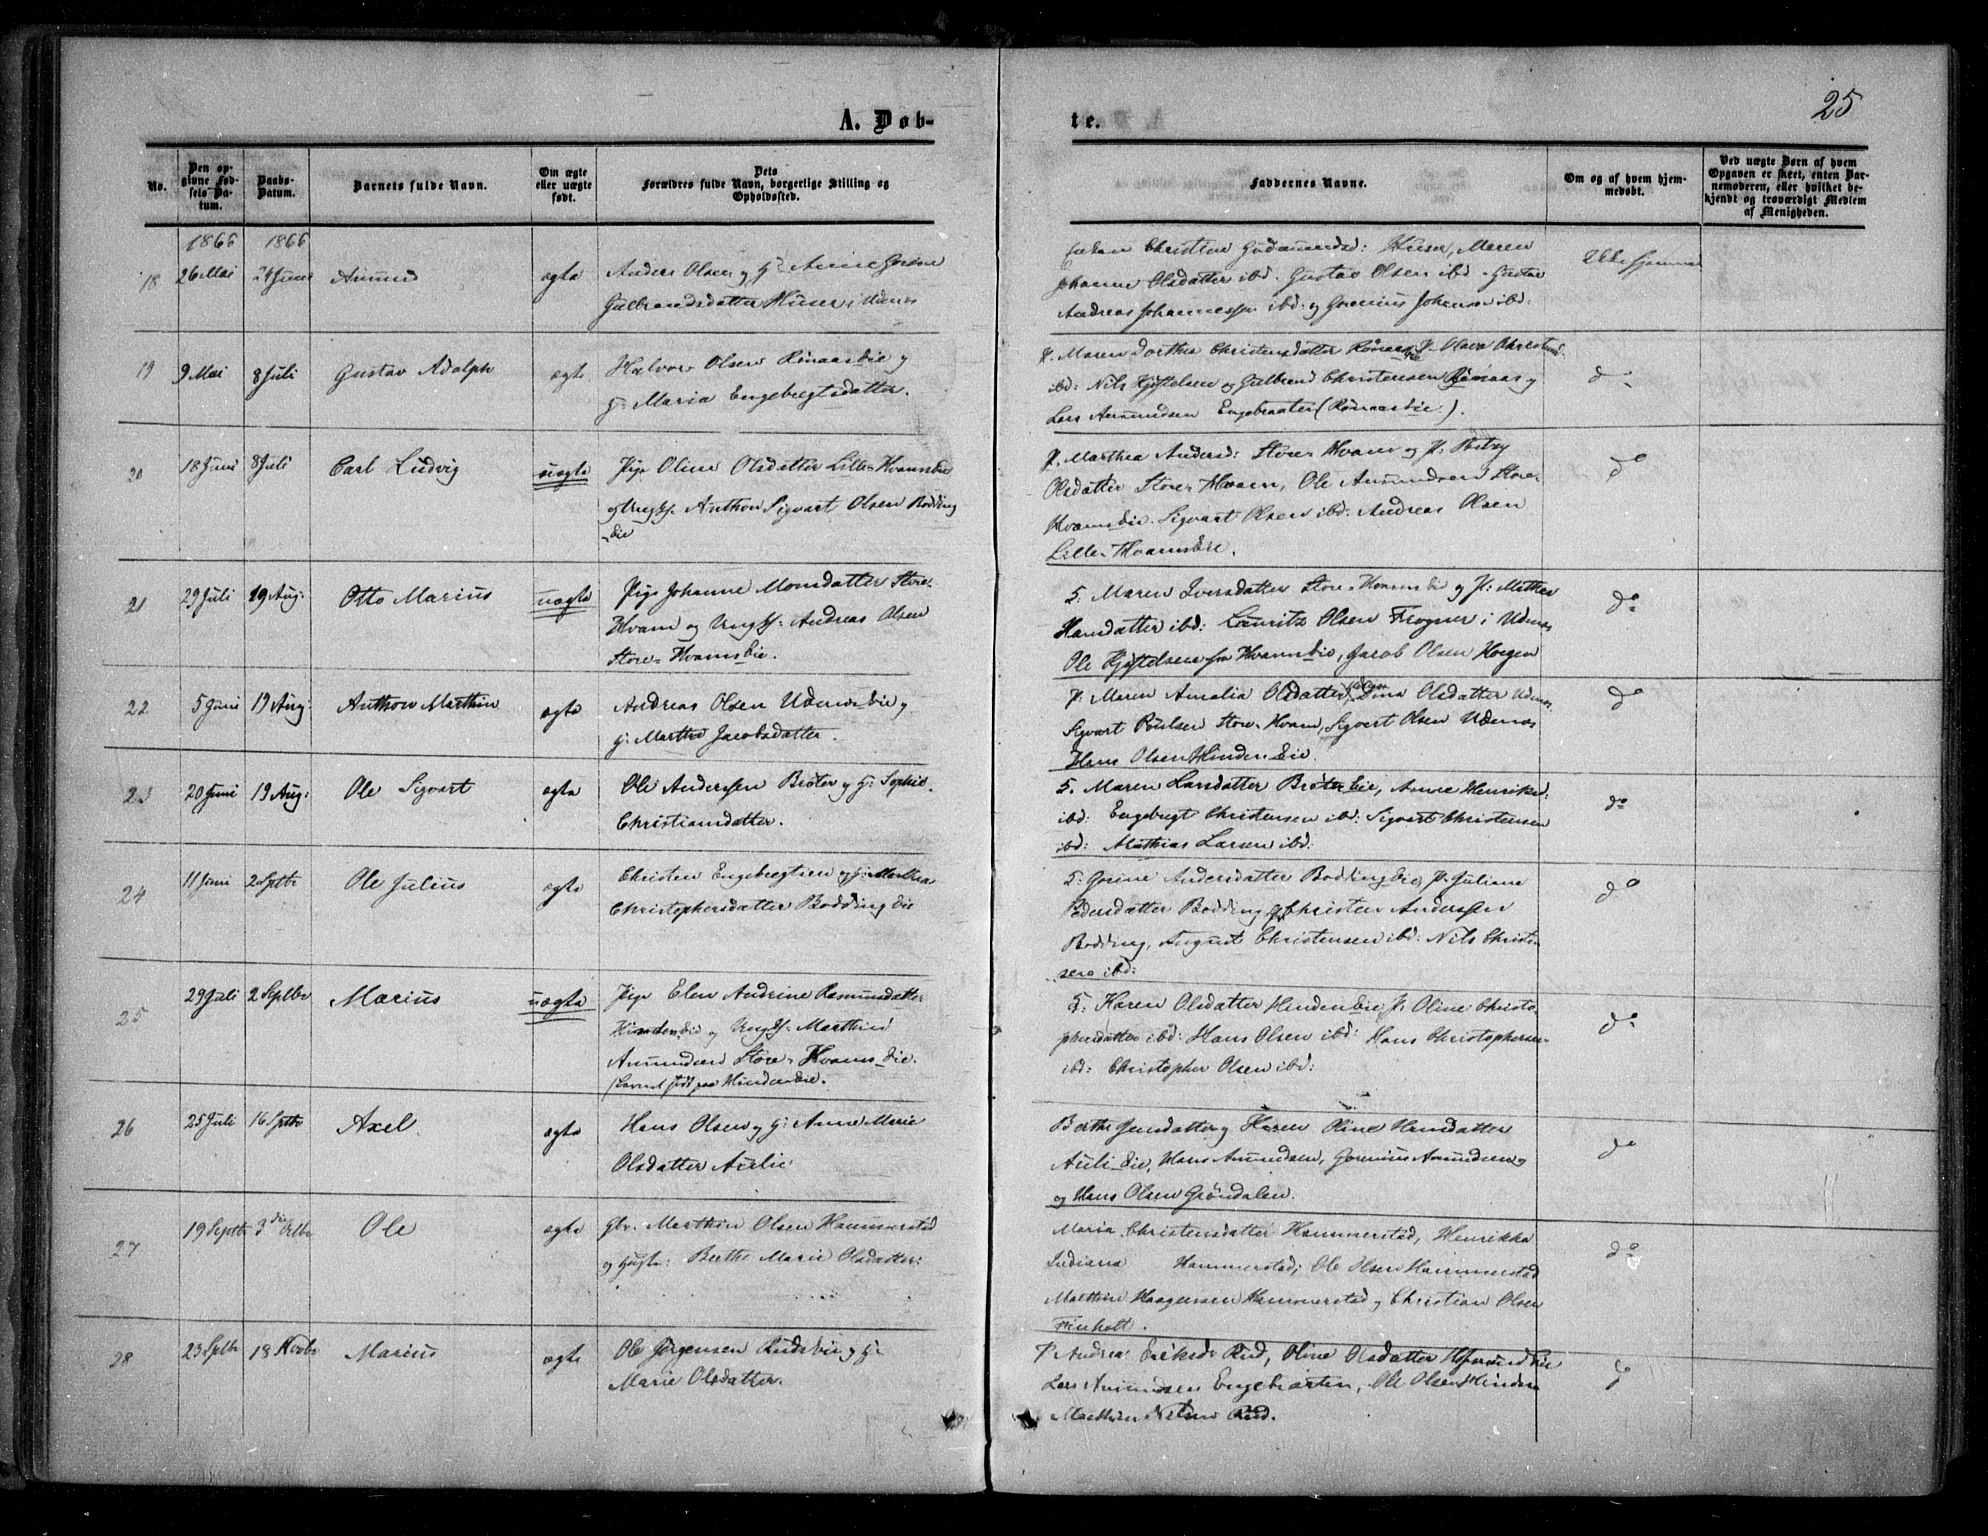 25
A. Døb- te.
No.
Den op-
givne Fød-
sels Da-
tum.
Daabs-
Datum.
Barnets fulde Navn.
Om ægte
eller uægte
født.
Dets
Forældres fulde Navn, borgerlige Stilling og
Opholdssted.
Faddernes Navne.
Om og af hvem hjem-
medøbt.
Ved uægte Børn af hvem
Opgaven er skeet, enten Bar-
nemoderen, eller hvilket be-
kjendt og troværdigt Medlem
af Menigheden.
1866 1866
18 26 Mai 24 Juni Amund ægte
Anders Olsen og H: Anne
Gulbrandsdatter Huser i Udnæs
Christine Gudmundsd: Huser, Maren
Johanne Olsdatter ibd. Gustav Olsen ibd. Gustav
Andreas Johannessen ibd: og Gorenius Johansen ibd:
19 9 Mai 8 Juli Gustav Adolph ægte
Halvor Olsen Rønaaseie og
H: Maria Engebregtsdatter.
P. Maren Dorthea Christensdatter P. Olava
ibd: Nils Kjøstelsen og Gulbrand Christensen Rønaas og
Lars Amundsen Engebraaten (Rønaaseie).
do
20 18 Juni 8 Juli Carl Ludvig uægte
Pige Oline Olsdatter Lille-Hvamseie
og Ungk. Anthon Sigvart Olsen Bodding
-eie
P. Marthea Andersd: Store-Hvam og P. Betsy
Olsdatter Store-Hvam, Ole Amundsen Store-
Hvamseie. Sigvart Olsen ibd: Andreas Olsen
Lille-Hvamseie.
do
21 29 Juli 19 Aug: Otto Marius uægte
Pige Johanne Monsdatter Store-
Hvam og Ungk: Andreas Olsen
Store-Hvamseie.
G. Maren Iversdatter Store-Hvamseie og P: Mathea
Hansdatter ibd: Lauritz Olsen Frogner i Udnæs
Ole Kjøstelsen fra Hvamseie, Jacob Olsen Horgen
do
22 5 Juni 19 Aug: Anthon Marthin ægte
Andreas Olsen Udnæseie og
H: Marthe Jacobsdatter.
P: Maren Amalia Olsdatter, Dina Olsdatter Udnæs
Sigvart Poulsen Store-Hvam, Sigvart Olsen Udnæs
Hans Olsen Hinden-Eie
do
23 20 Juni 19 Aug: Ole Sigvart ægte
Ole Anderssen Brøter og H: Sophie
Christiansdatter.
G. Maren Larsdatter Brøter-eie, Anne Henriksd:
ibd: Engebregt Christensen ibd: Sigvart Christensen
ibd: Mathias Larsen ibd:
do
24 11 Juni 2 Septbr Ole Julius ægte
Christen Engebregtsen og H: Marthea
Christophersdatter Boddingeie
G: Gorine Andersdatter Boddingeie, P. Juliane
Pedersdatter Bodding, Christen Anderssen
Bodding, August Christensen ibd: Nils Christen-
sen ibd:
do
25 29 Juli 2 Septbr Marius uægte
Pige Elen Andrine Rasmusdatter
Hindeneie og Ungk: Marthin
Amundsen Store-Hvams-eie.
(Barnet født paa Hindeneie.
G. Karen Olsdatter Hindeneie, P. Oline Christo-
phersdatter ibd: Hans Olsen ibd: Hans Christophersen
ibd: Christopher Olsen ibd:
do
26 25 Juli 16 Septbr Axel ægte
Hans Olsen og H: Anne Marie
Olsdatter Aulie
Berthe Jensdatter og Karen Oline Hansdatter
Auli-eie, Hans Amundsen, Gorenius Amundsen og
og Hans Olsen Grøndalen.
do
27 19 Septbr 3die Ole ægte
Gbr. Marthin Olsen Hammerstad
og Hustr: Berthe Marie Olsdatter:
Maria Christensdatter Hammerstad, Henrikka
Indiana Hammerstad; Ole Olsen Hammerstad
Marthin Haagensen Hammerstad og Christian Olsen
Finholt.
do
28 23 Septbr 18 Novbr Marius ægte
Ole Jørgensen Rudseie og H:
Marie Olsdatter.
P. Andrea Eriksd: Rud, Oline Olsdatter
Lars Amundsen Engebraaten, Ole Olsen Hinden
Marthin Nilsen Rud.